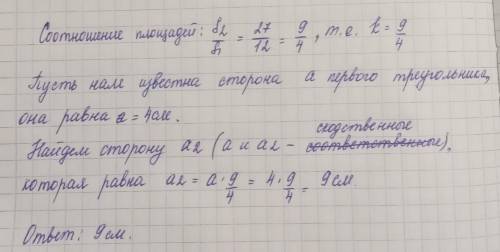 Соотношение площадей: S2/S1 = 27/12 = 9/4, т.е. k = 9/4
Пусть нам известна сторона a первого треугольника,
она равна a = 4см.
сходственные
Найдем сторону a2 (a и a2 - соответственные),
которая равна a2 = a · 9/4 = 4 · 9/4 = 9 см
Ответ: 9 см.